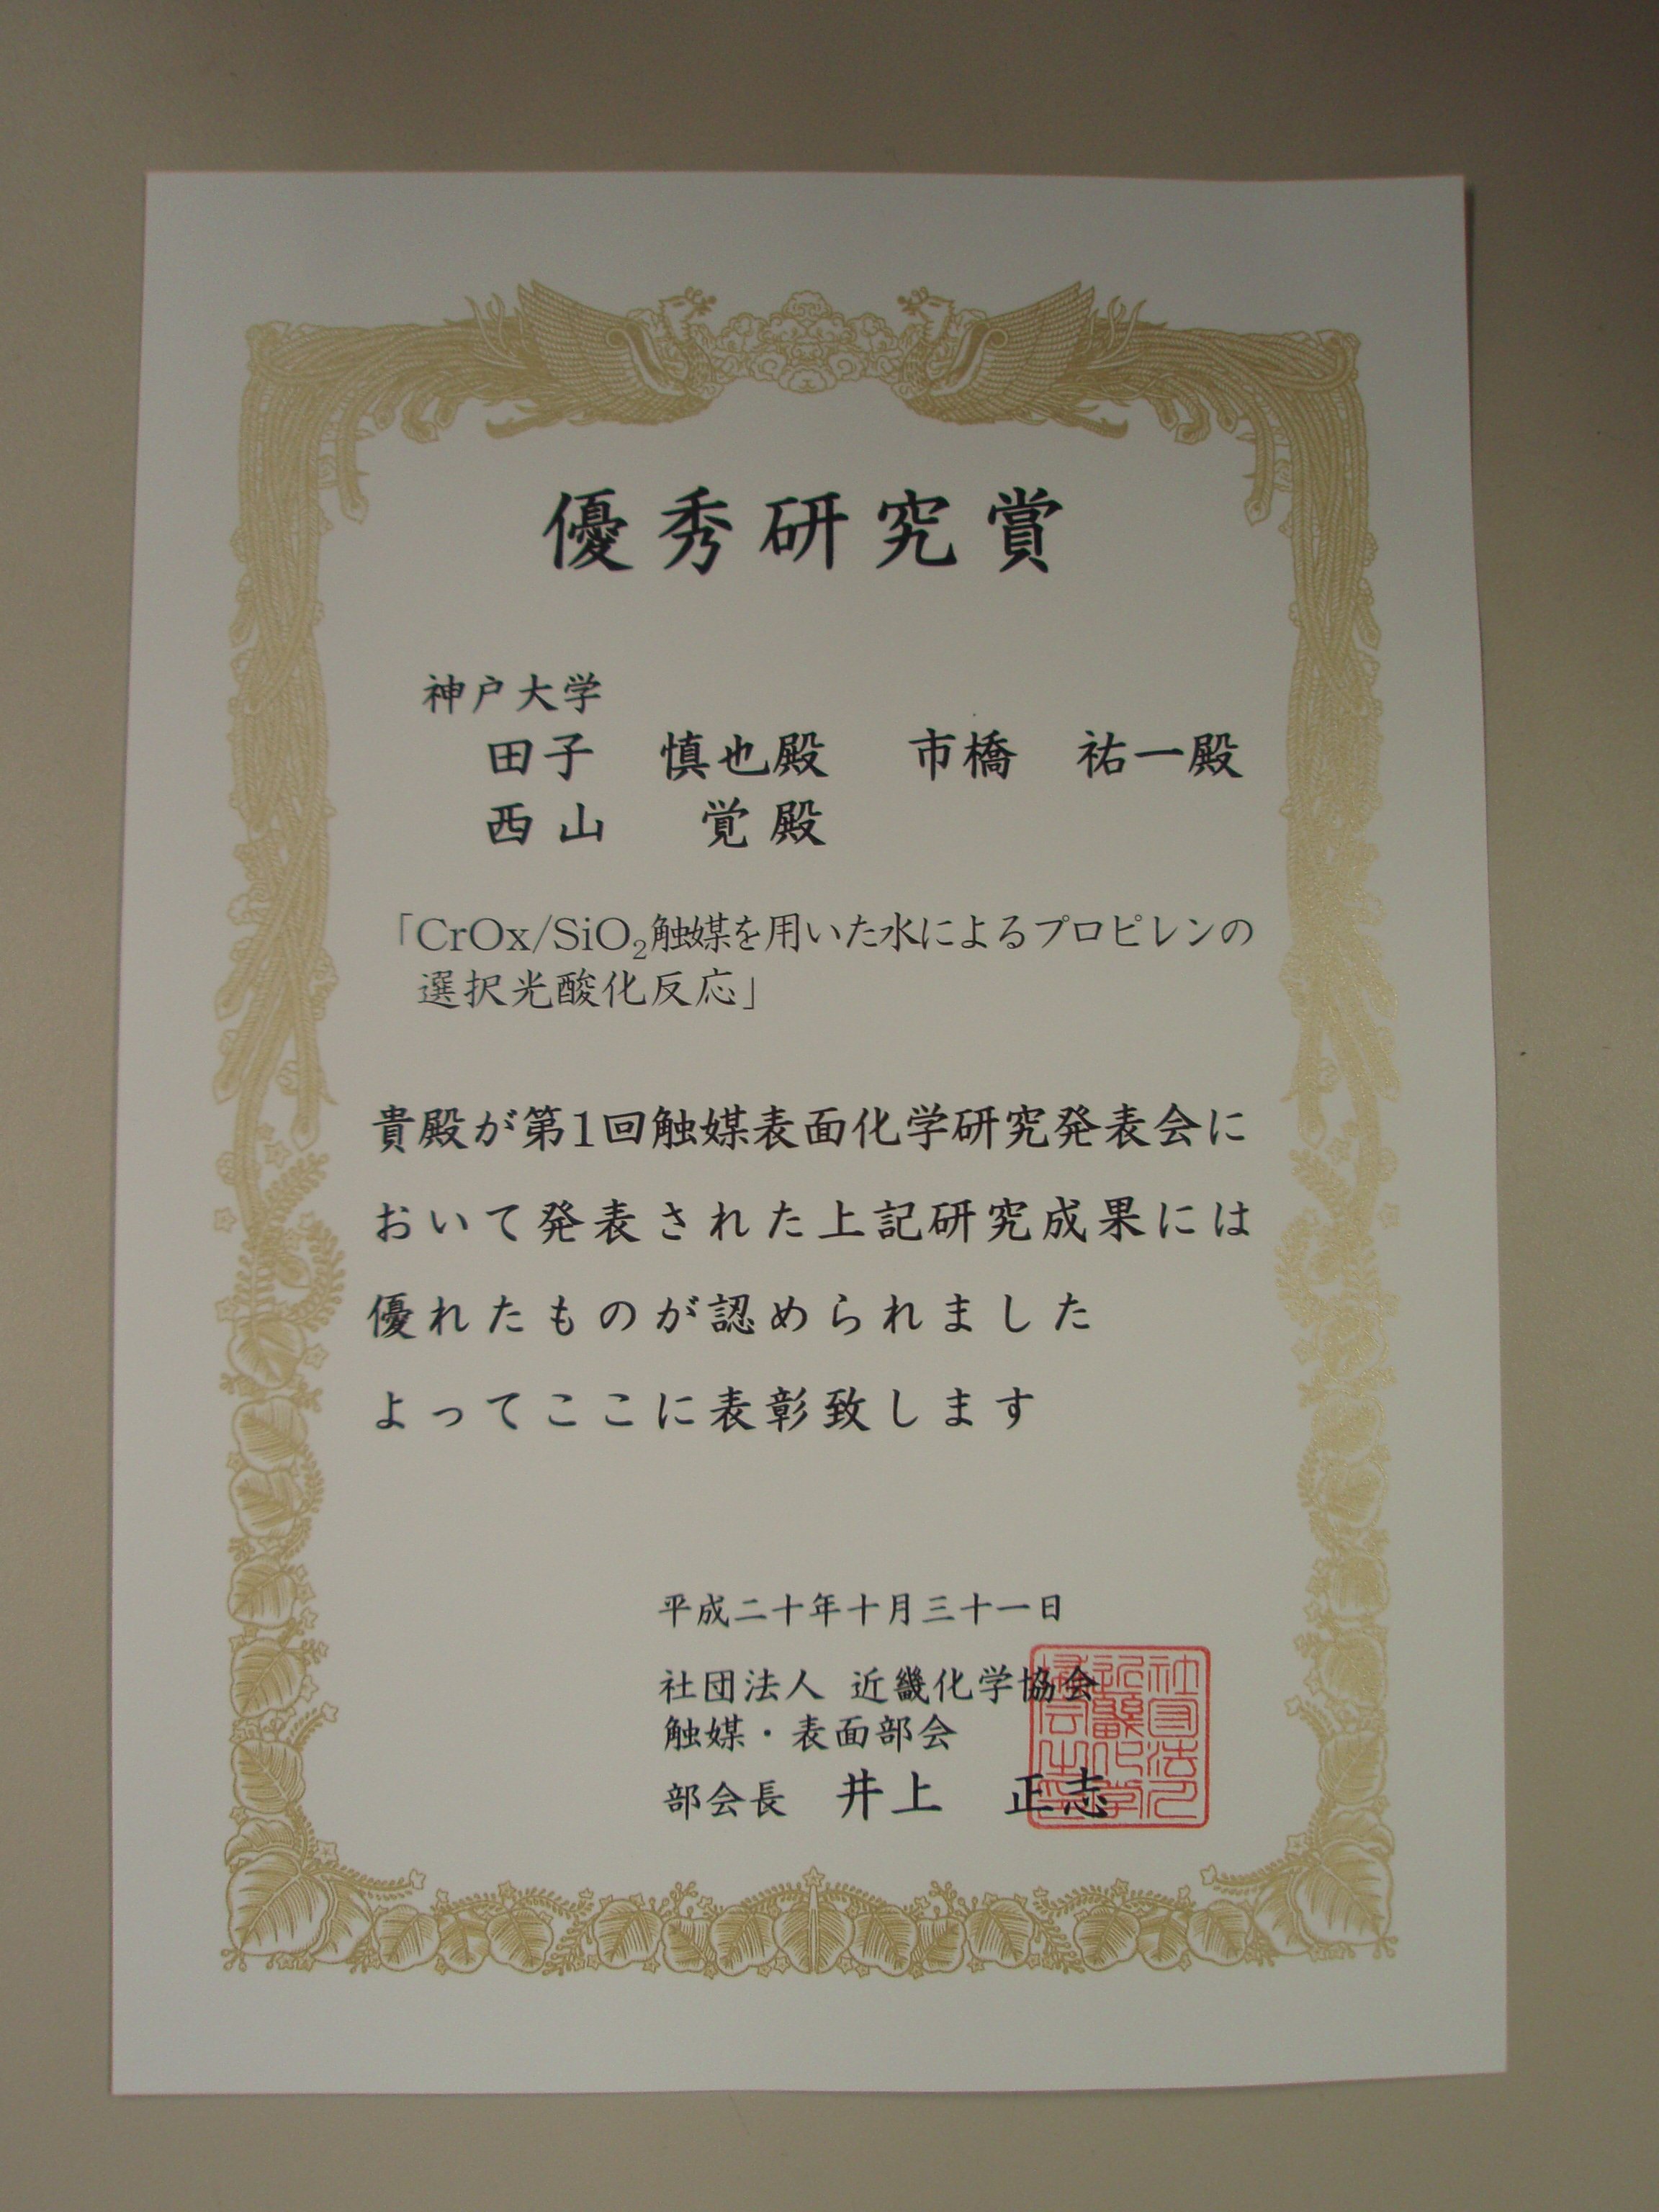 優秀研究賞
神戸大学
田子　慎也殿　市橋　祐一殿
西山　覚殿
「CrOx/SiO₂触媒を用いた水によるプロピレンの
選択光酸化反応」
貴殿が第1回触媒表面化学研究発表会に
おいて発表された上記研究成果には
優れたものが認められました
よってここに表彰致します
平成二十年十月三十一日
社団法人 近畿化学協会
触媒・表面部会
部会長　井上　正志
社団法人近畿化学協会之印